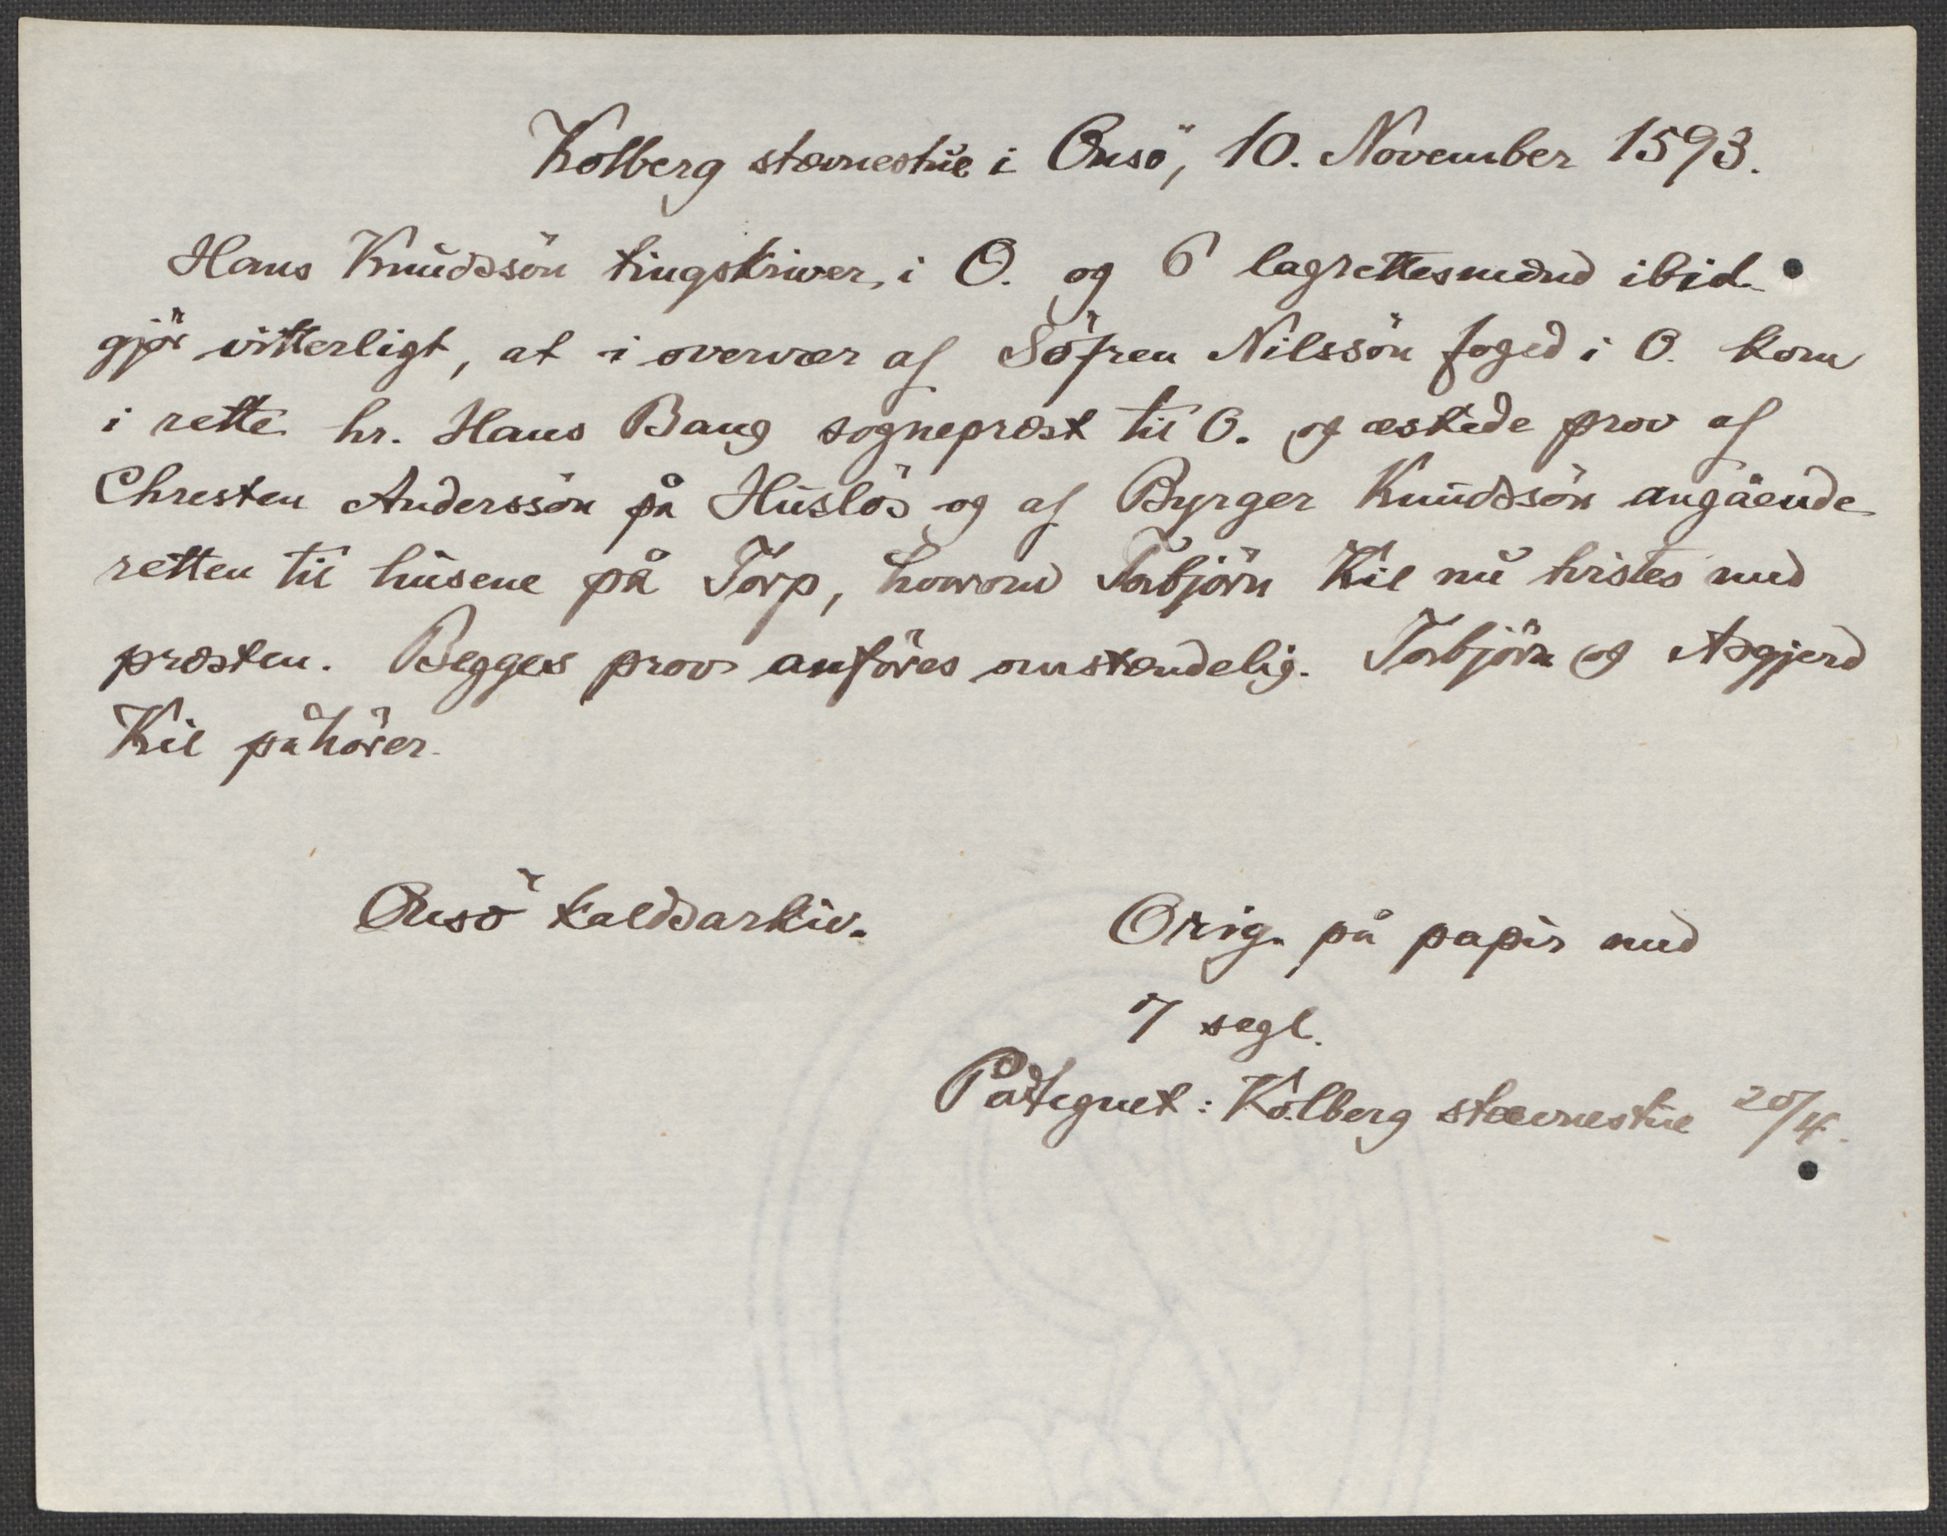 Kolberg stævnestue i Onsö, 10. November 1593.
Hans Knudssön tingskriver, i O. og 6 lagrettesmænd ibid.
gjör vitterligt, at i overvær af Söfren Nilssön foged i O. kom
i rette hr. Hans Bang sognepræst til O. og æskede prov af
Christen Anderssön på Huslös og af Byrger Knudssön angående
retten til husene på Torp, hvorom Torbjörn Kil nu tvistes med
præsten. Begges prov anföres omstændelig. Torbjörn og Asgjerd
Kil påhörer.
Onsö kaldsarkiv.
Orig. på papir med
7 segl.
Påtegnet: Kolberg stævnestue 20/4.